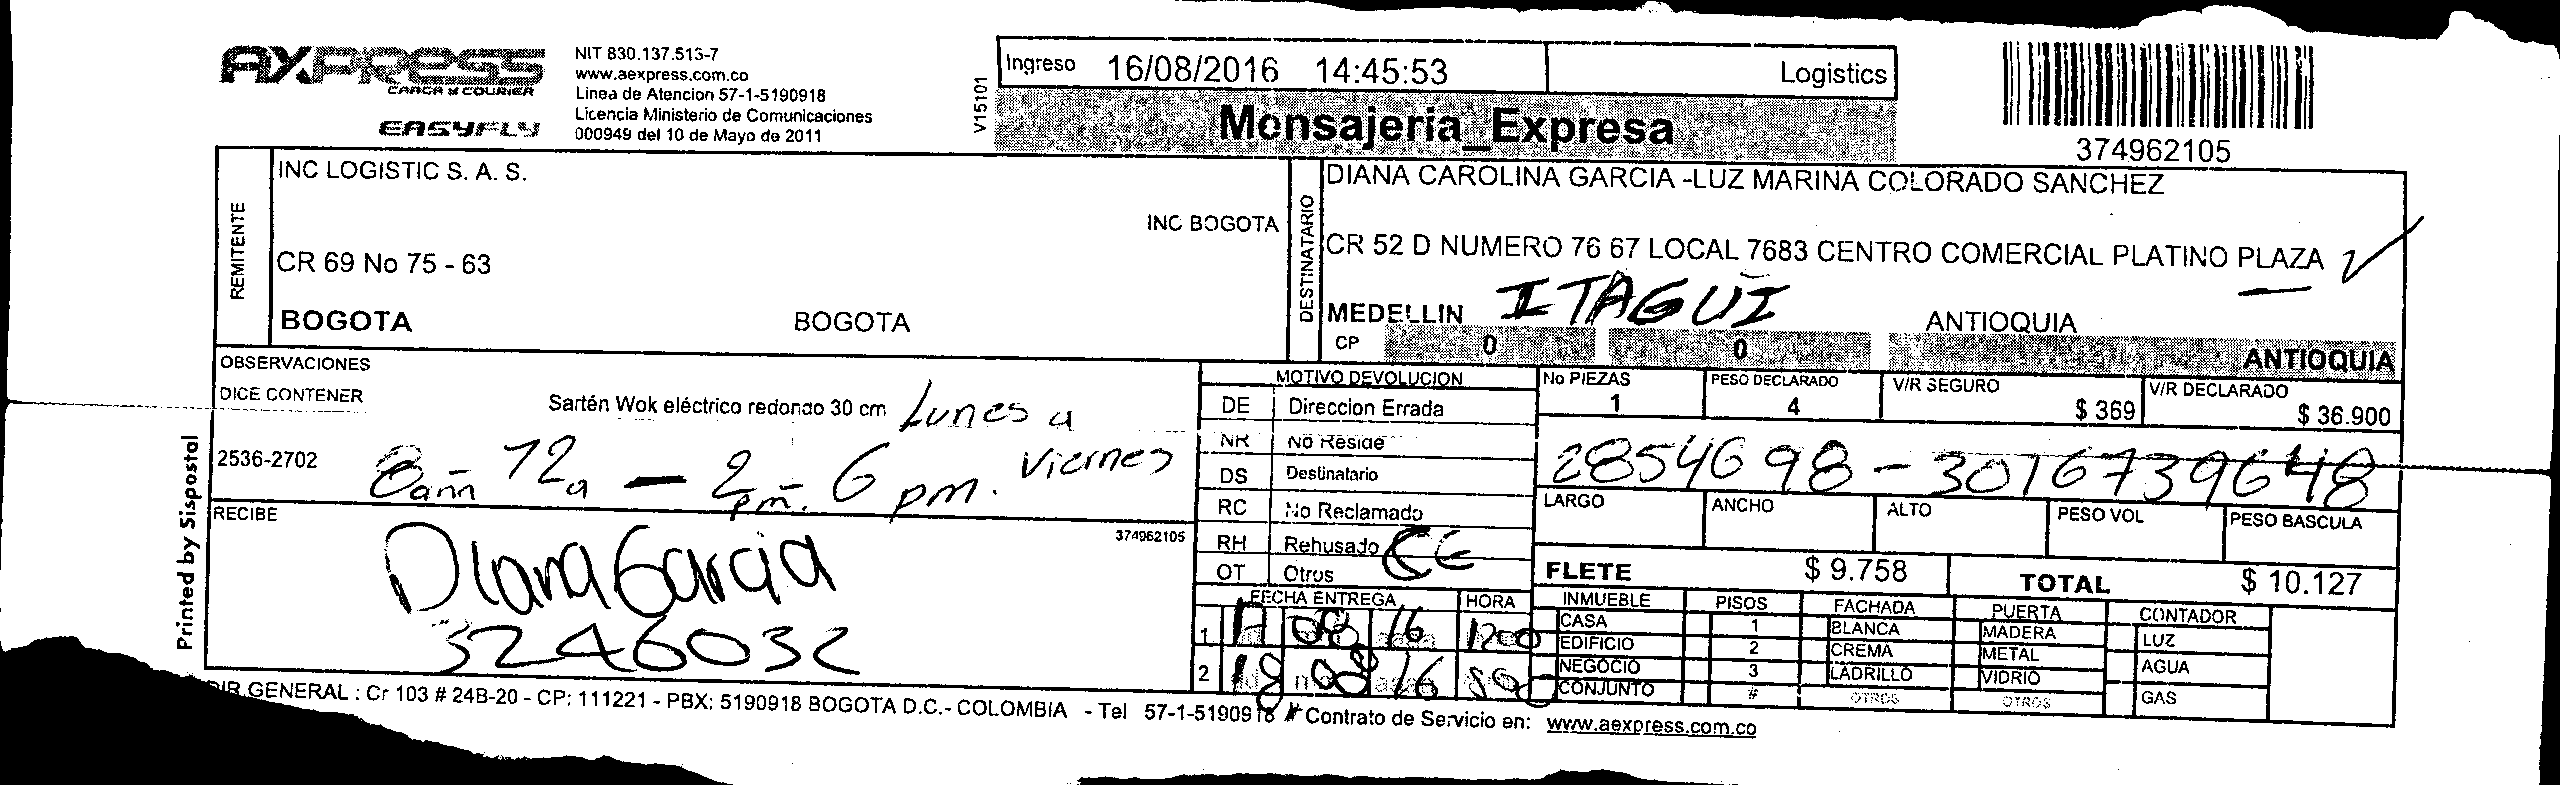 AXPRESS
CARGA & COURIER
EASYFLY
NIT 830.137.513-7
www.aexpress.com.co
Linea de Atencion 57-1-5190918
Licencia Ministerio de Comunicaciones
000949 del 10 de Mayo de 2011
V15101
Ingreso 16/08/2016 14:45:53 Logistics
Mensajeria_Expresa
374962105
REMITENTE
INC LOGISTIC S. A. S.
INC BOGOTA
CR 69 No 75 - 63
BOGOTA BOGOTA
DESTINATARIO
DIANA CAROLINA GARCIA -LUZ MARINA COLORADO SANCHEZ
CR 52 D NUMERO 76 67 LOCAL 7683 CENTRO COMERCIAL PLATINO PLAZA
MEDELLIN ITAGUI ANTIOQUIA
CP 0 0 ANTIOQUIA
OBSERVACIONES
DICE CONTENER Sartén Wok eléctrico redondo 30 cm Lunes a
Viernes
2536-2702 8am 12a - 2pm. 6 pm.
RECIBE
374962105
Diana Garcia
3246032
Printed by Sispostal
MOTIVO DEVOLUCION
DE Direccion Errada
NR No Reside
DS Destinatario
RC No Reclamado
RH Rehusado
OT Otros
FECHA ENTREGA HORA
1 08 16 1200
2 18 08 16
No PIEZAS PESO DECLARADO V/R SEGURO V/R DECLARADO
1 4 $ 369 $ 36.900
2854698 - 3016739648
LARGO ANCHO ALTO PESO VOL PESO BASCULA
FLETE $ 9.758 TOTAL $ 10.127
INMUEBLE PISOS FACHADA PUERTA CONTADOR
CASA 1 BLANCA MADERA LUZ
EDIFICIO 2 CREMA METAL AGUA
NEGOCIO 3 LADRILLO VIDRIO
CONJUNTO # OTROS OTROS GAS
DIR GENERAL : Cr 103 # 24B-20 - CP: 111221 - PBX: 5190918 BOGOTA D.C.- COLOMBIA - Tel 57-1-5190918 # Contrato de Servicio en: www.aexpress.com.co